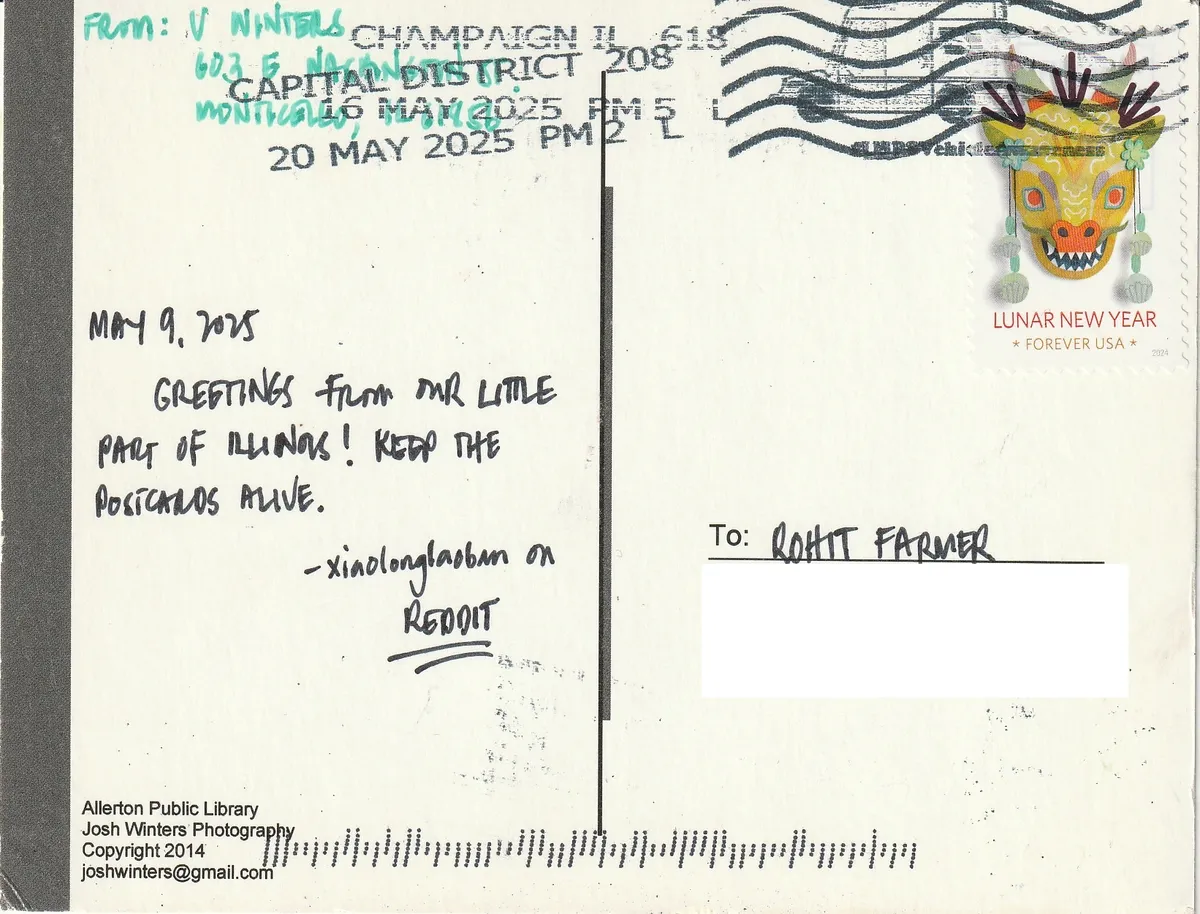 From: V WINTERS
603 E
MONTICELLO, IL
CHAMPAIGN IL 618
CAPITAL DISTRICT 208
16 MAY 2025 PM 5 L
20 MAY 2025 PM 2 L
LUNAR NEW YEAR
* FOREVER USA *
2024
MAY 9, 2025
GREETINGS FROM OUR LITTLE
PART OF ILLINOIS! KEEP THE
POSTCARDS ALIVE.
-xiaolongbaobun on
REDDIT
To: ROHIT FARMER
Allerton Public Library
Josh Winters Photography
Copyright 2014
joshwinters@gmail.com